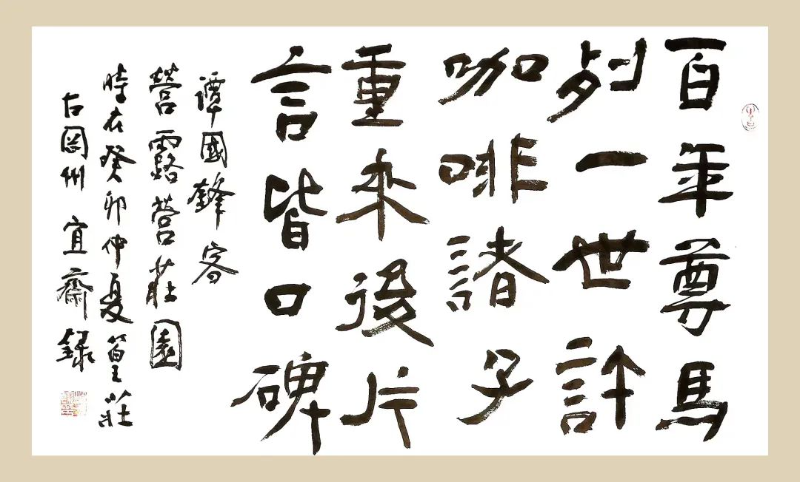 百年尊馬
列一世許
咖啡諸子
重來後片
言皆口碑
譚國鋒客
營露營莊園
時在癸卯仲夏篁莊
古岡州 宜齋錄